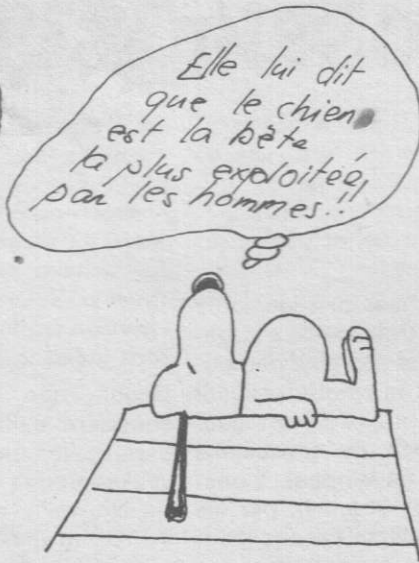 Elle lui dit
que le chien
est la bête
la plus exploitée
par les hommes!!